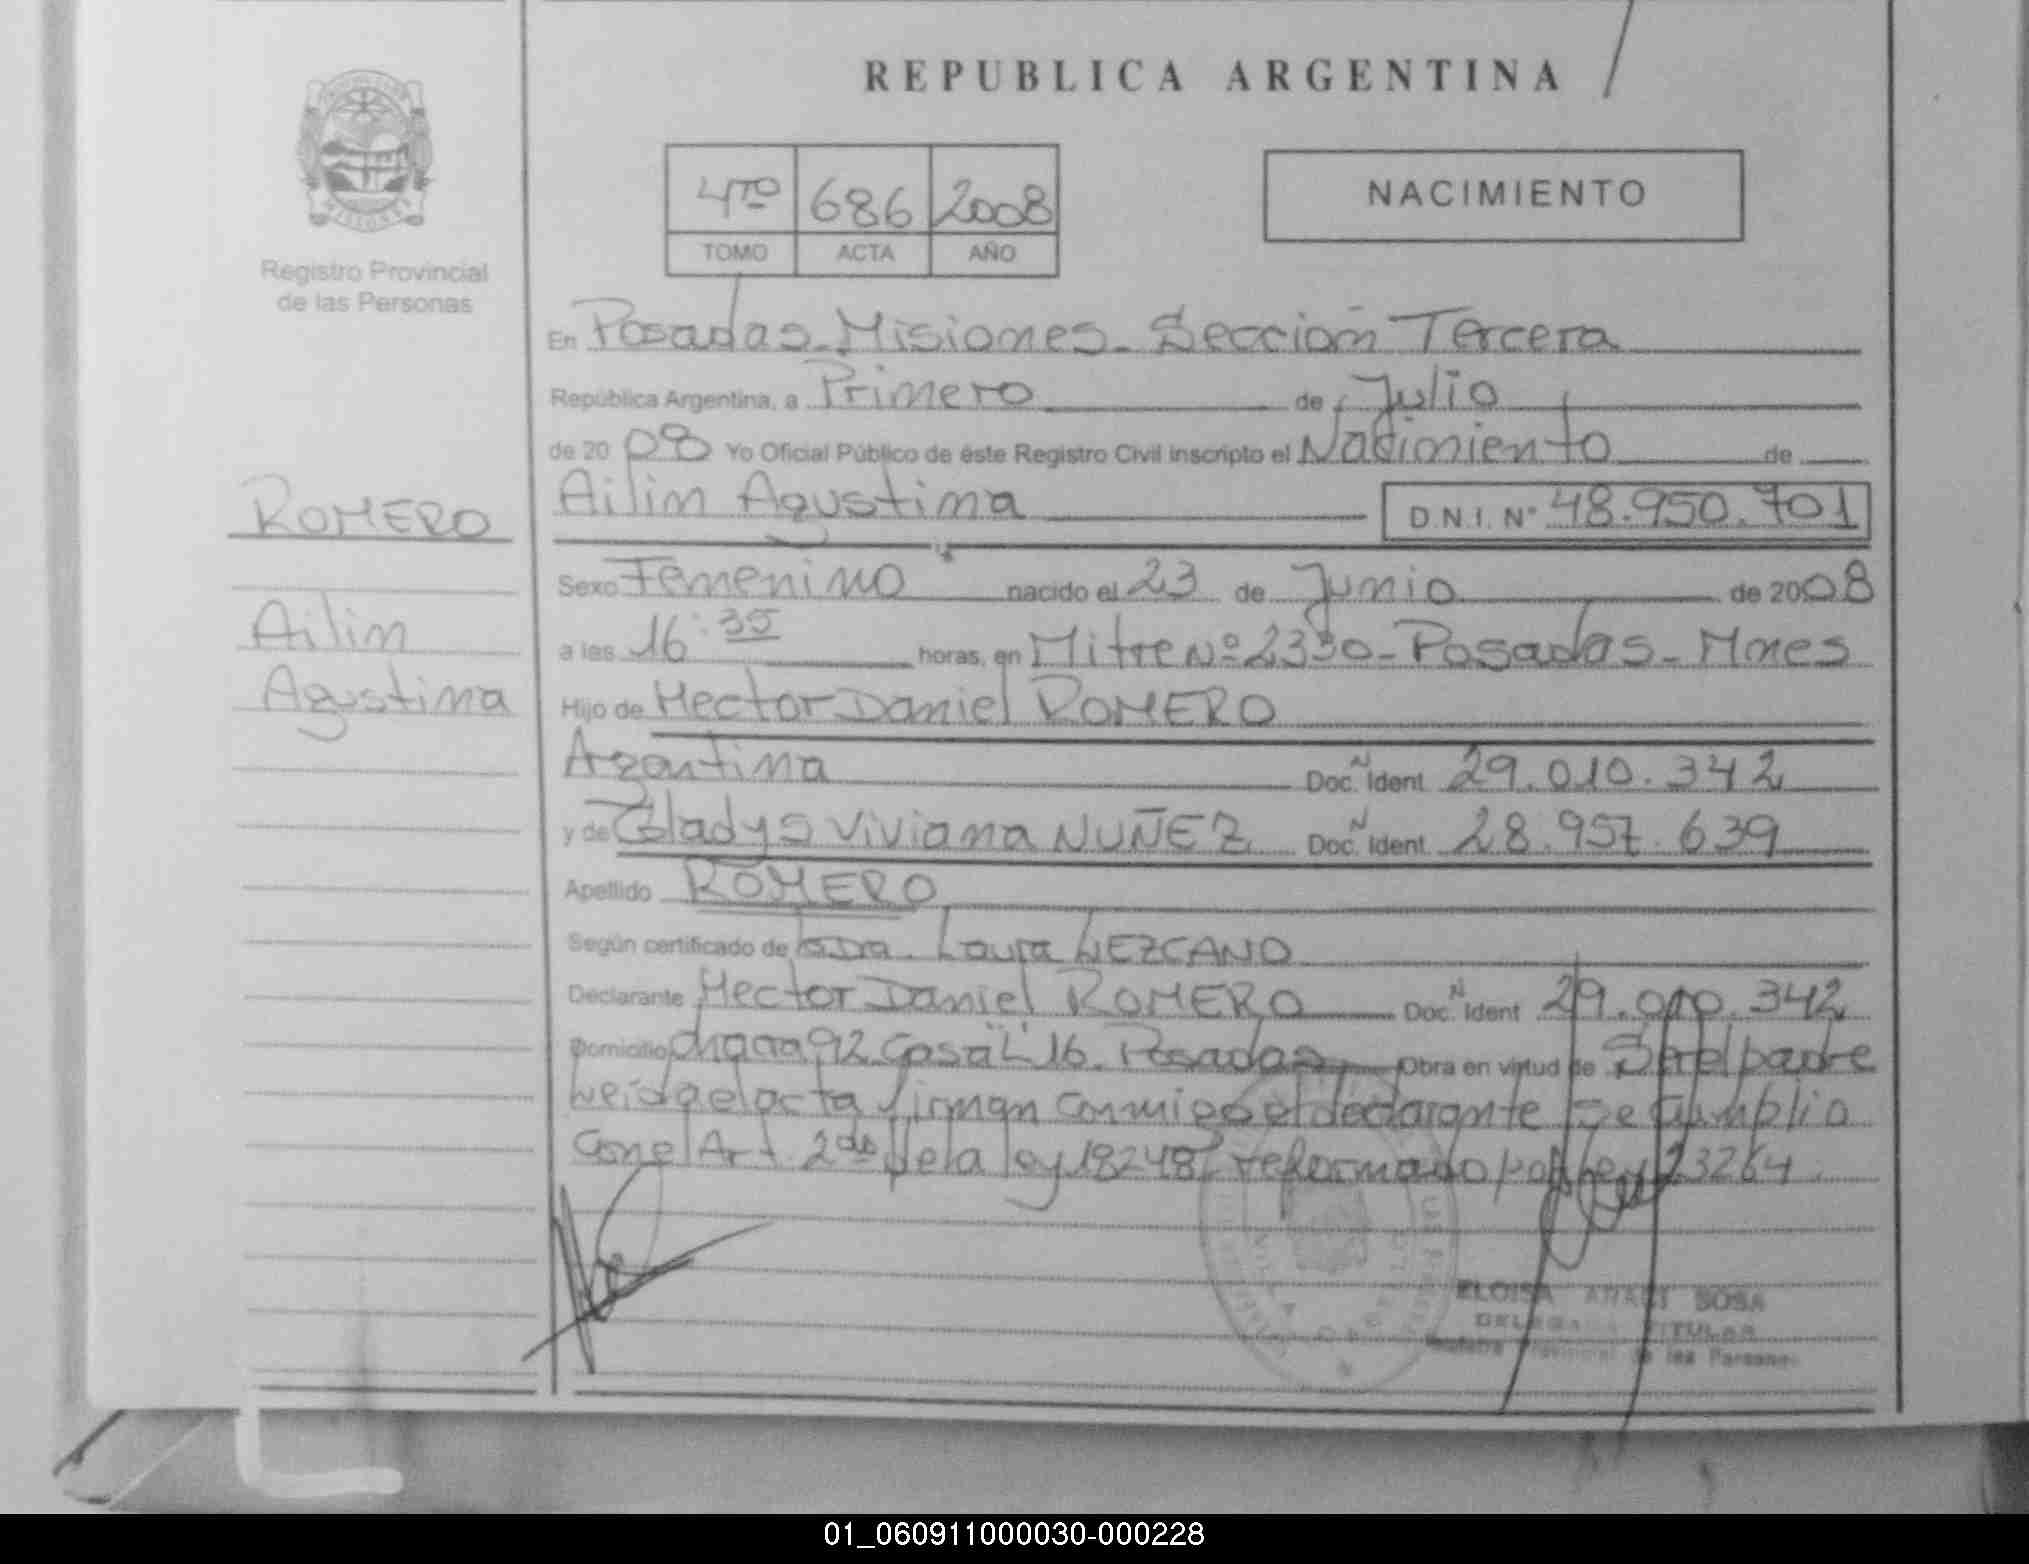 REPUBLICA ARGENTINA
4to 686 2008
TOMO ACTA AÑO
NACIMIENTO
Registro Provincial
de las Personas
ROMERO
Ailin
Agustina
En Posadas - Misiones - Sección Tercera
República Argentina, a Primero de Julio
de 2008 Yo Oficial Público de éste Registro Civil inscripto el Nacimiento de
Ailin Agustina D.N.I. N° 48.950.701
Sexo Femenino nacido el 23 de Junio de 2008
a las 16:35 horas, en Mitre Nº 2330 - Posadas - Mnes
Hijo de Hector Daniel ROMERO
Argentina Doc. N Ident 29.010.342
y de Gladys Viviana NUÑEZ Doc. N Ident 28.957.639
Apellido ROMERO
Según certificado de Dra. Laura LEZCANO
Declarante Hector Daniel ROMERO Doc. N Ident 29.010.342
Domicilio chacra 92 Casa "L" 16. Posadas Obra en virtud de Ser el padre
Leida el acta firman conmigo el declarante Se cumplio
con el Art. 2do de la ley 18248 reformado por ley 23264.
ELOISA ANAHI SOSA
DELEGADA TITULAR
Registro Provincial de las Personas
01_060911000030-000228